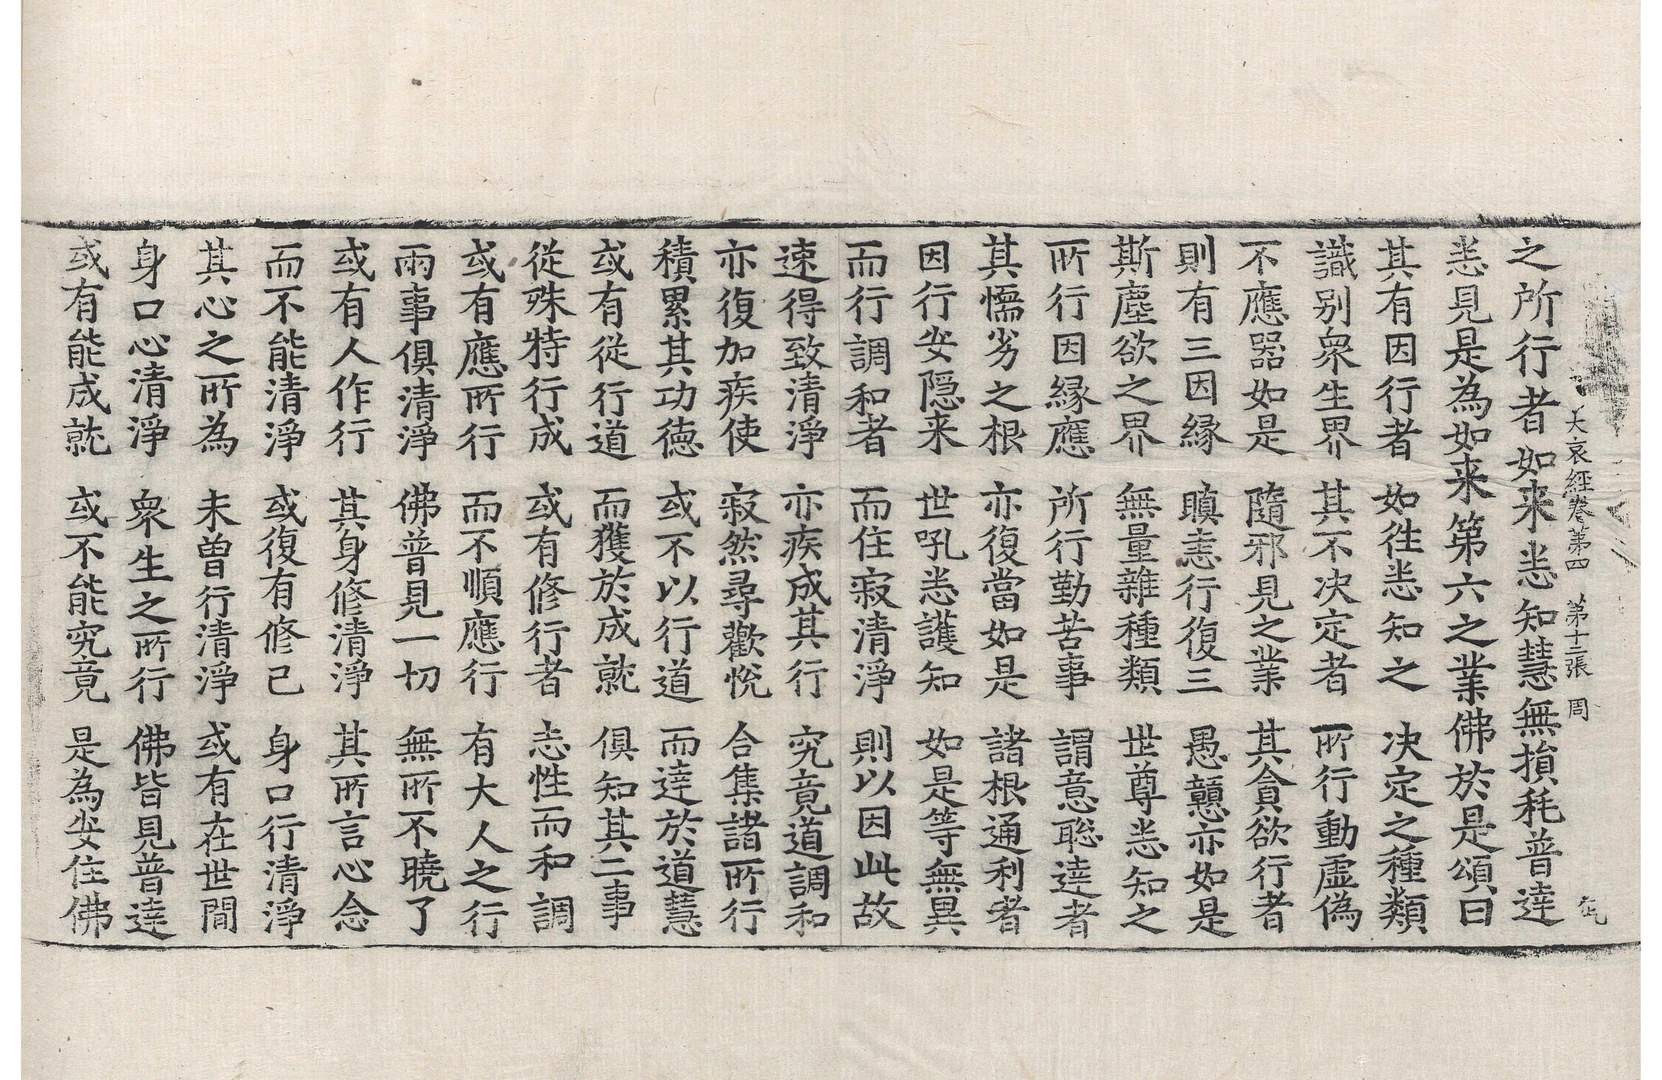 大哀經卷第四　第十二張　周
之所行者如来悉知慧無損耗普達
悉見是為如来第六之業佛於是頌曰
其有因行者　如往悉知之　决定之種類
識别衆生界　其不决定者　所行動虛偽
不應器如是　隨邪見之業　其貪欲行者
則有三因縁　瞋恚行復三　愚戇亦如是
斯塵欲之界　無量雜種類　世尊悉知之
所行因縁應　所行勤苦事　謂意聡達者
其懦劣之根　亦復當如是　諸根通利者
因行安隠来　世吼悉護知　如是等無異
而行調和者　而住寂清淨　則以因此故
速得致清淨　亦疾成其行　究竟道調和
亦復加疾使　寂然尋歡悅　合集諸所行
積累其功德　或不以行道　而達於道慧
或有從行道　而獲於成就　俱知其二事
從殊特行成　或有修行者　志性而和調
或有應所行　而不順應行　有大人之行
兩事俱清淨　佛普見一切　無所不曉了
或有人作行　其身修清淨　其所言心念
而不能清淨　或復有修己　身口行清淨
其心之所為　未曾行清淨　或有在世間
身口心清淨　衆生之所行　佛皆見普達
或有能成就　或不能究竟　是為安住佛